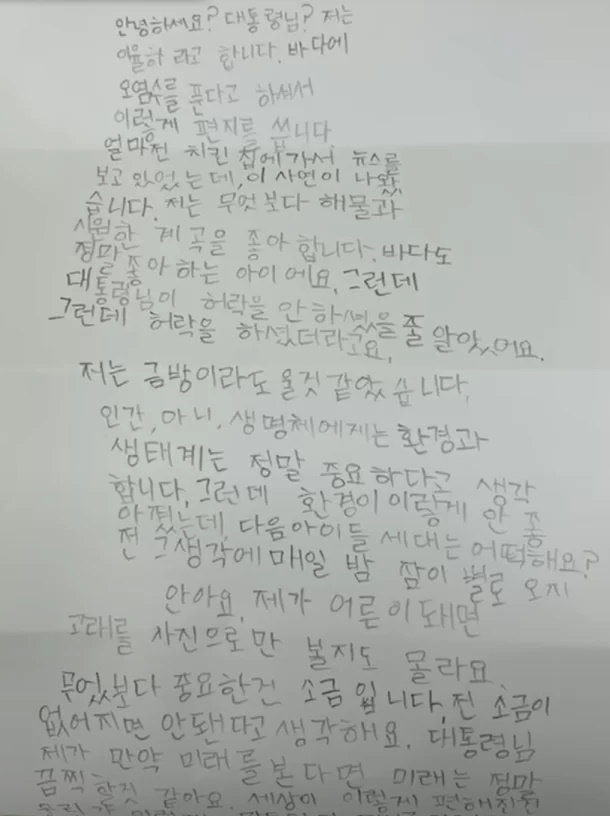 안녕하세요? 대통령님? 저는
이율하 라고 합니다. 바다에
오염수를 푼다고 하셔서
이렇게 편지를 씁니다.
얼마전 치킨 집에가서 뉴스를
보고 있었는데, 이 사연이 나왔
습니다. 저는 무엇보다 해물과
시원한 계곡을 좋아합니다. 바다도
정마 를 좋아하는 아이에요. 그런데
대통령님이 허락을 안 하셨을 줄 알았어요.
그런데 허락을 하셨더라고요.
저는 금방이라도 울것 같았습니다.
인간, 아니, 생명체에게는 환경과
생태계는 정말 중요하다고 생각
합니다. 그런데 환경이 이렇게 안 좋
아쪘는데, 다음아이들 세대는 어떡해요?
전 그생각에 매일 밤 잠이 별로 오지
안아요. 제가 어른이 돼면
고래를 사진으로만 볼지도 몰라요.
무엇보다 중요한건 소금 입니다. 전 소금이
없어지면 안됀다고 생각해요. 대통령님
제가 만약 미래를 본다면 미래는 정말
끔찍 할것 같아요. 세상이 이렇게 편해진건